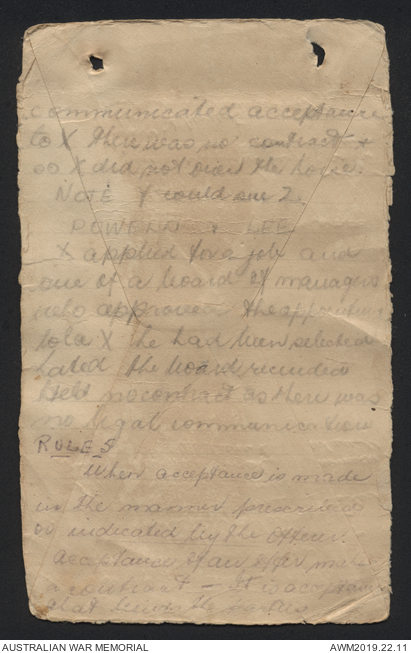 communicated acceptance
to X there was no contract +
so X did not own the horse.
NOTE Y could sue Z.
POWDER V LEE
X applied for a job and
one of a board of managers
who approved the application
told X he had been selected
Lated the board rescinded
Held no contract as there was
no legal communication
RULES
When acceptance is made
in the manner prescribed
or indicated by the offeror.
acceptance of an offer makes
a contract — It is acceptance
that binds the parties
AUSTRALIAN WAR MEMORIAL
AWM2019.22.11